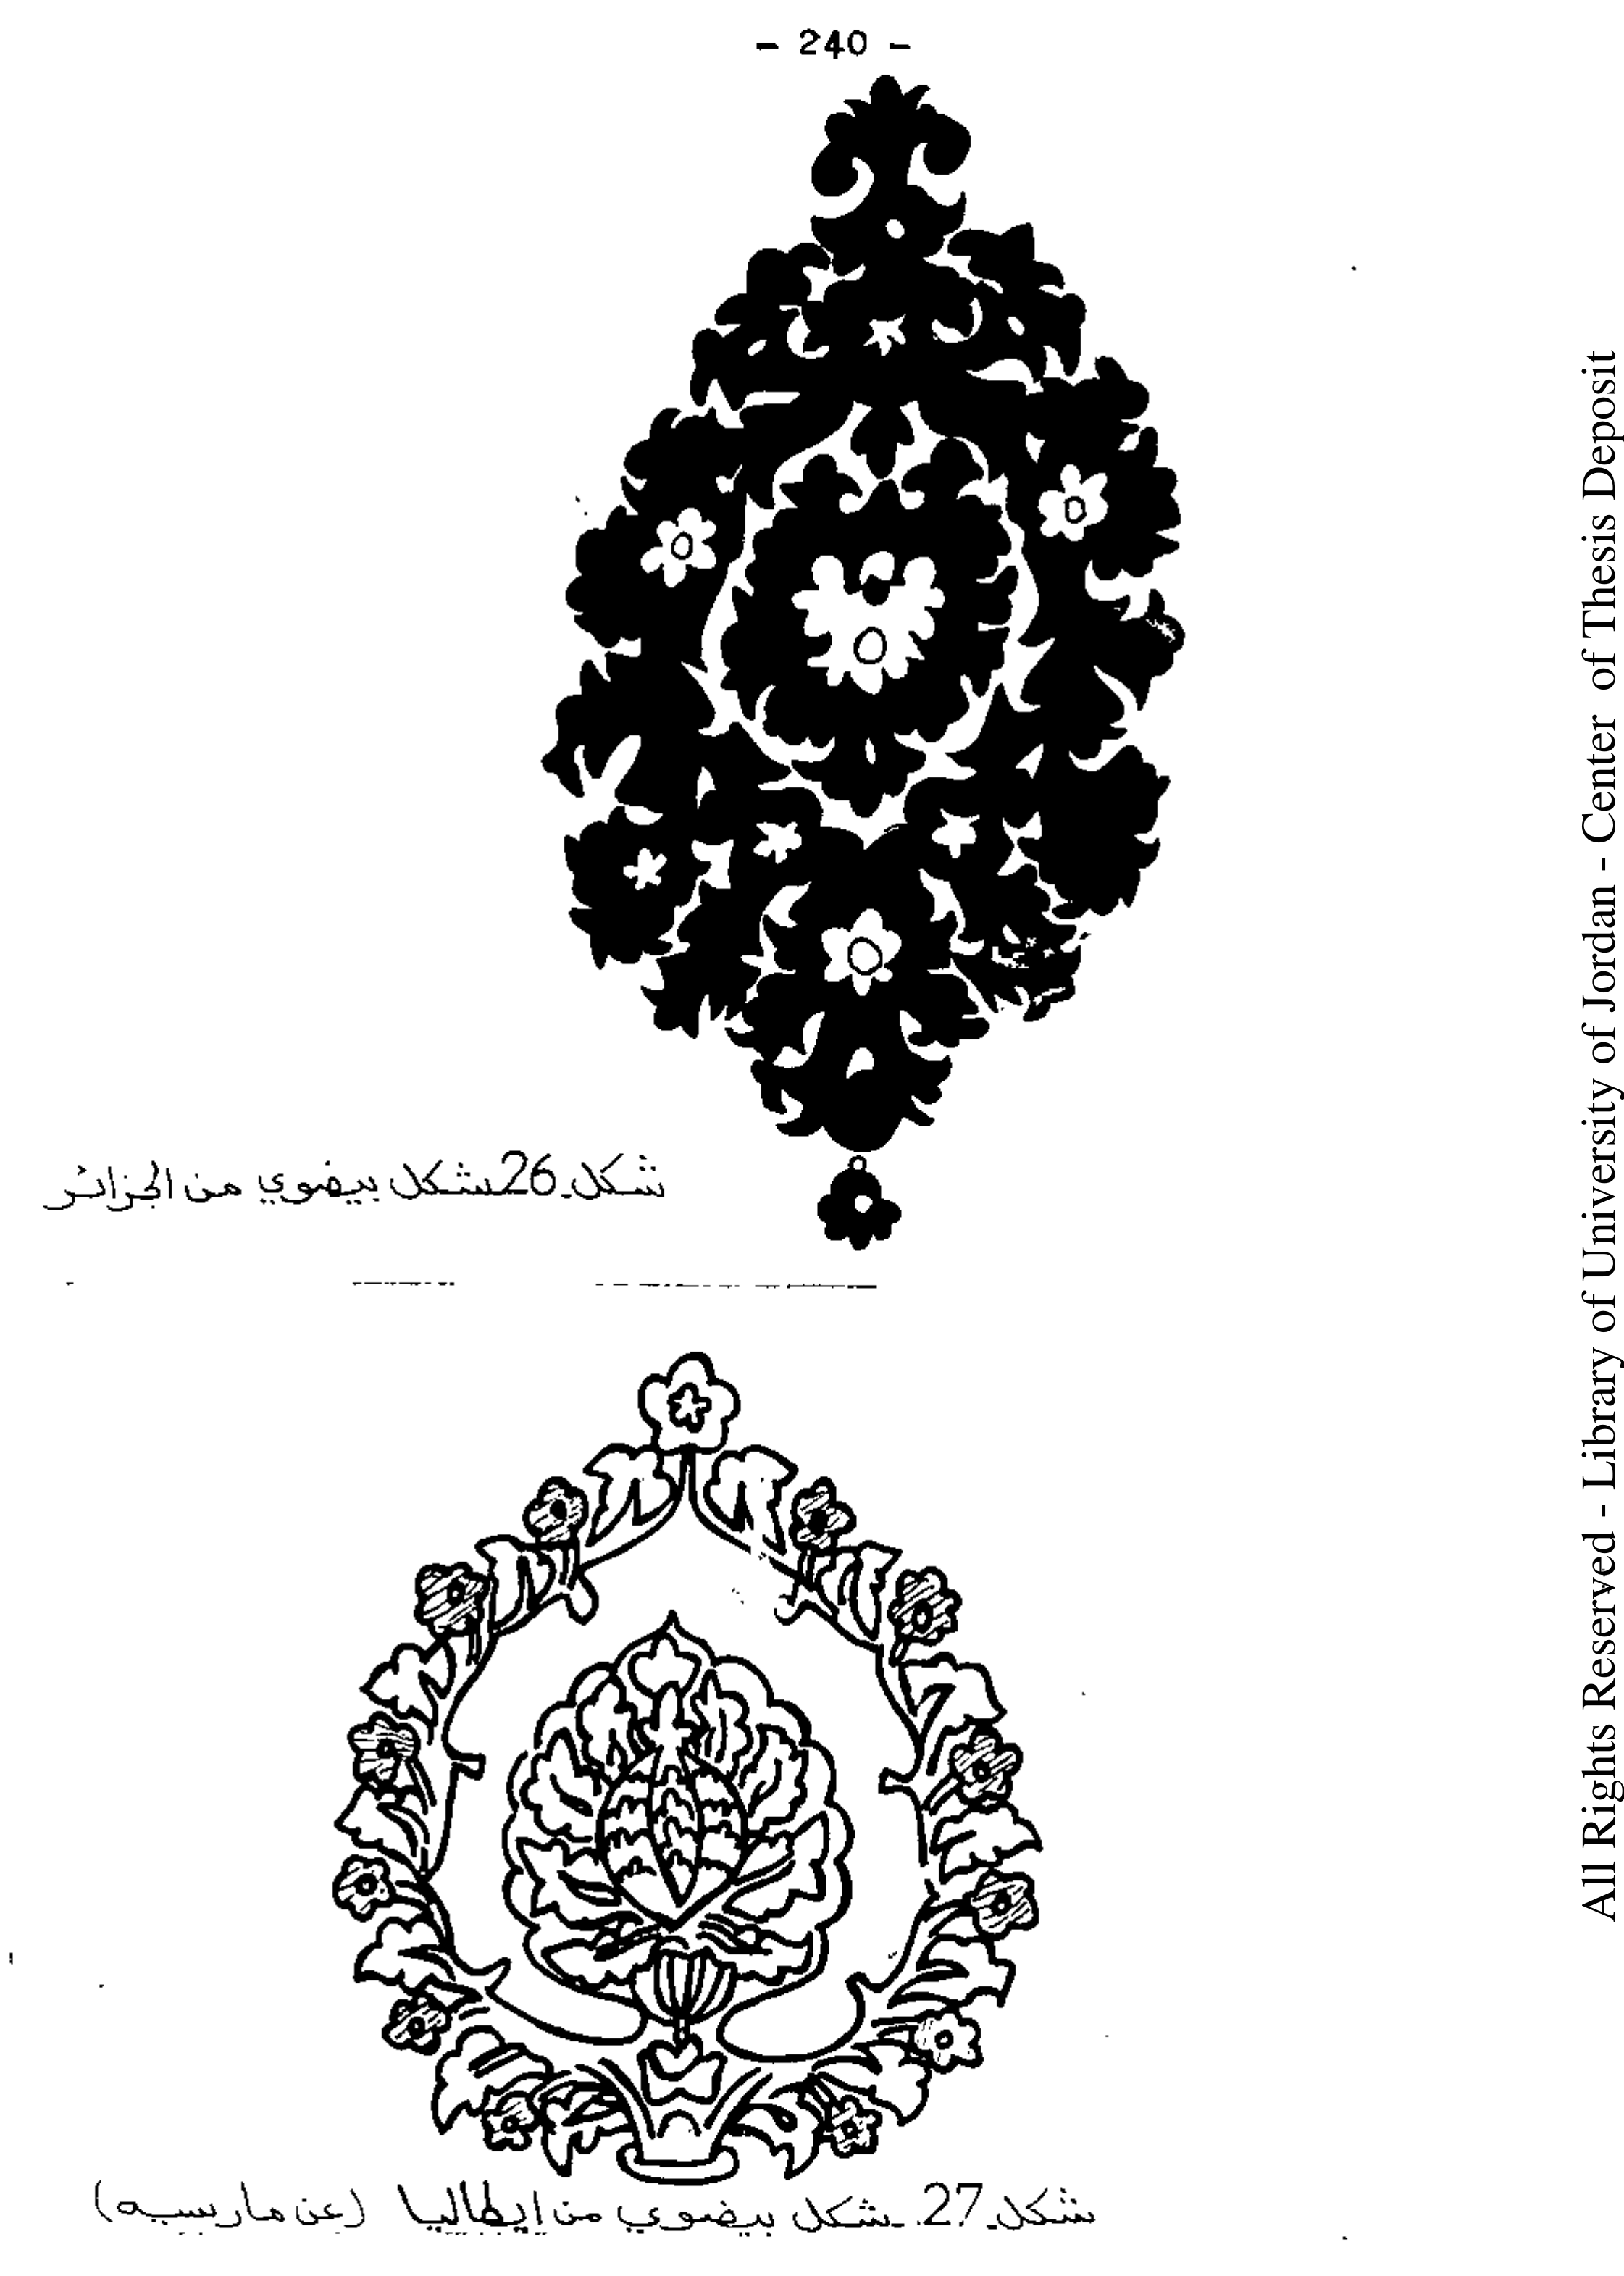 - 240 -
شكل 26 شكل بيضوي من الجزائر
شكل 27. شكل بيضوي من إيطاليا (عن مارسيه)
All Rights Reserved - Library of University of Jordan - Center of Thesis Deposit